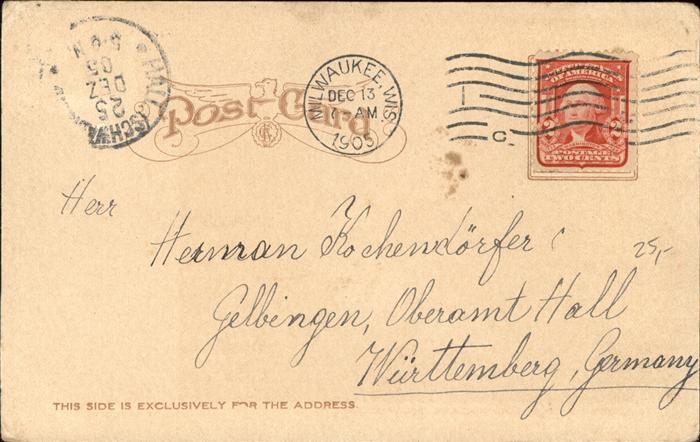 HALL (SCHWÄB.)
25
DEZ
05
5-6 N.
Post Card
MILWAUKEE, WIS.
DEC 13
AM
1905
C.
UNITED STATES
OF AMERICA
2 2
POSTAGE
TWO CENTS
Herr
Herman Kochendörfer
25,-
Gelbingen, Oberamt Hall
Württemberg, Germany
THIS SIDE IS EXCLUSIVELY FOR THE ADDRESS.